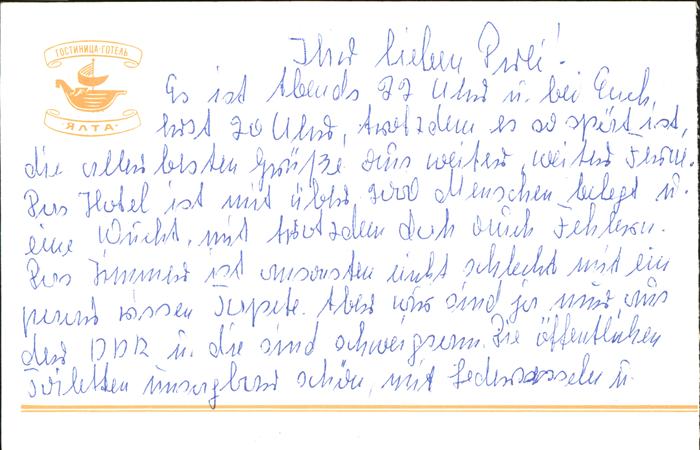 ГОСТИНИЦА·ГОТЕЛЬ
·ЯЛТА·
Ihr lieben Drei!
Es ist Abends 22 Uhr u. bei Euch,
erst 20 Uhr, trotzdem es so spät ist,
die aller besten Grüße aus weiter, weiter Ferne.
Das Hotel ist mit über 2000 Menschen belegt u.
eine Wucht, mit trotzdem doch auch Fehlern.
Das Zimmer ist ansonsten nicht schlecht mit ein
paar Tapete. Aber wir sind ja nur aus
der DDR u. die sind schweigsam. Die öffentlichen
Toiletten unsagbar schön, mit Ledersesseln u.